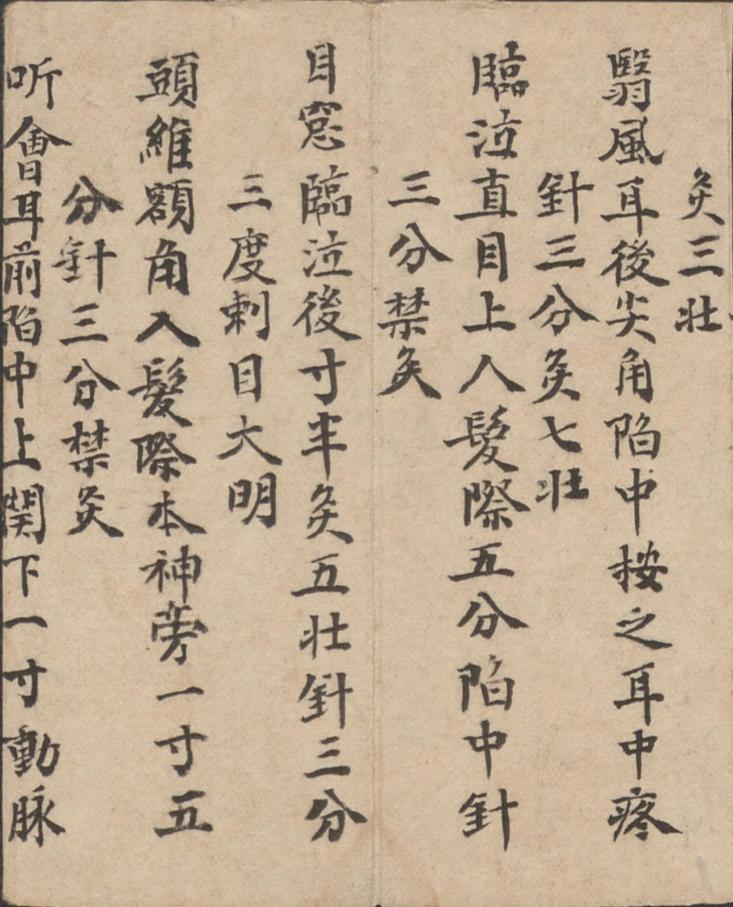 灸三壯
翳風耳後尖角陷中按之耳中疼
針三分灸七壯
臨泣直目上入髮際五分陷中針
三分禁灸
目窓臨泣後寸半灸五壯針三分
三度刺目大明
頭維額角入髮際本神旁一寸五
分針三分禁灸
听會耳前陷中上関下一寸動脉